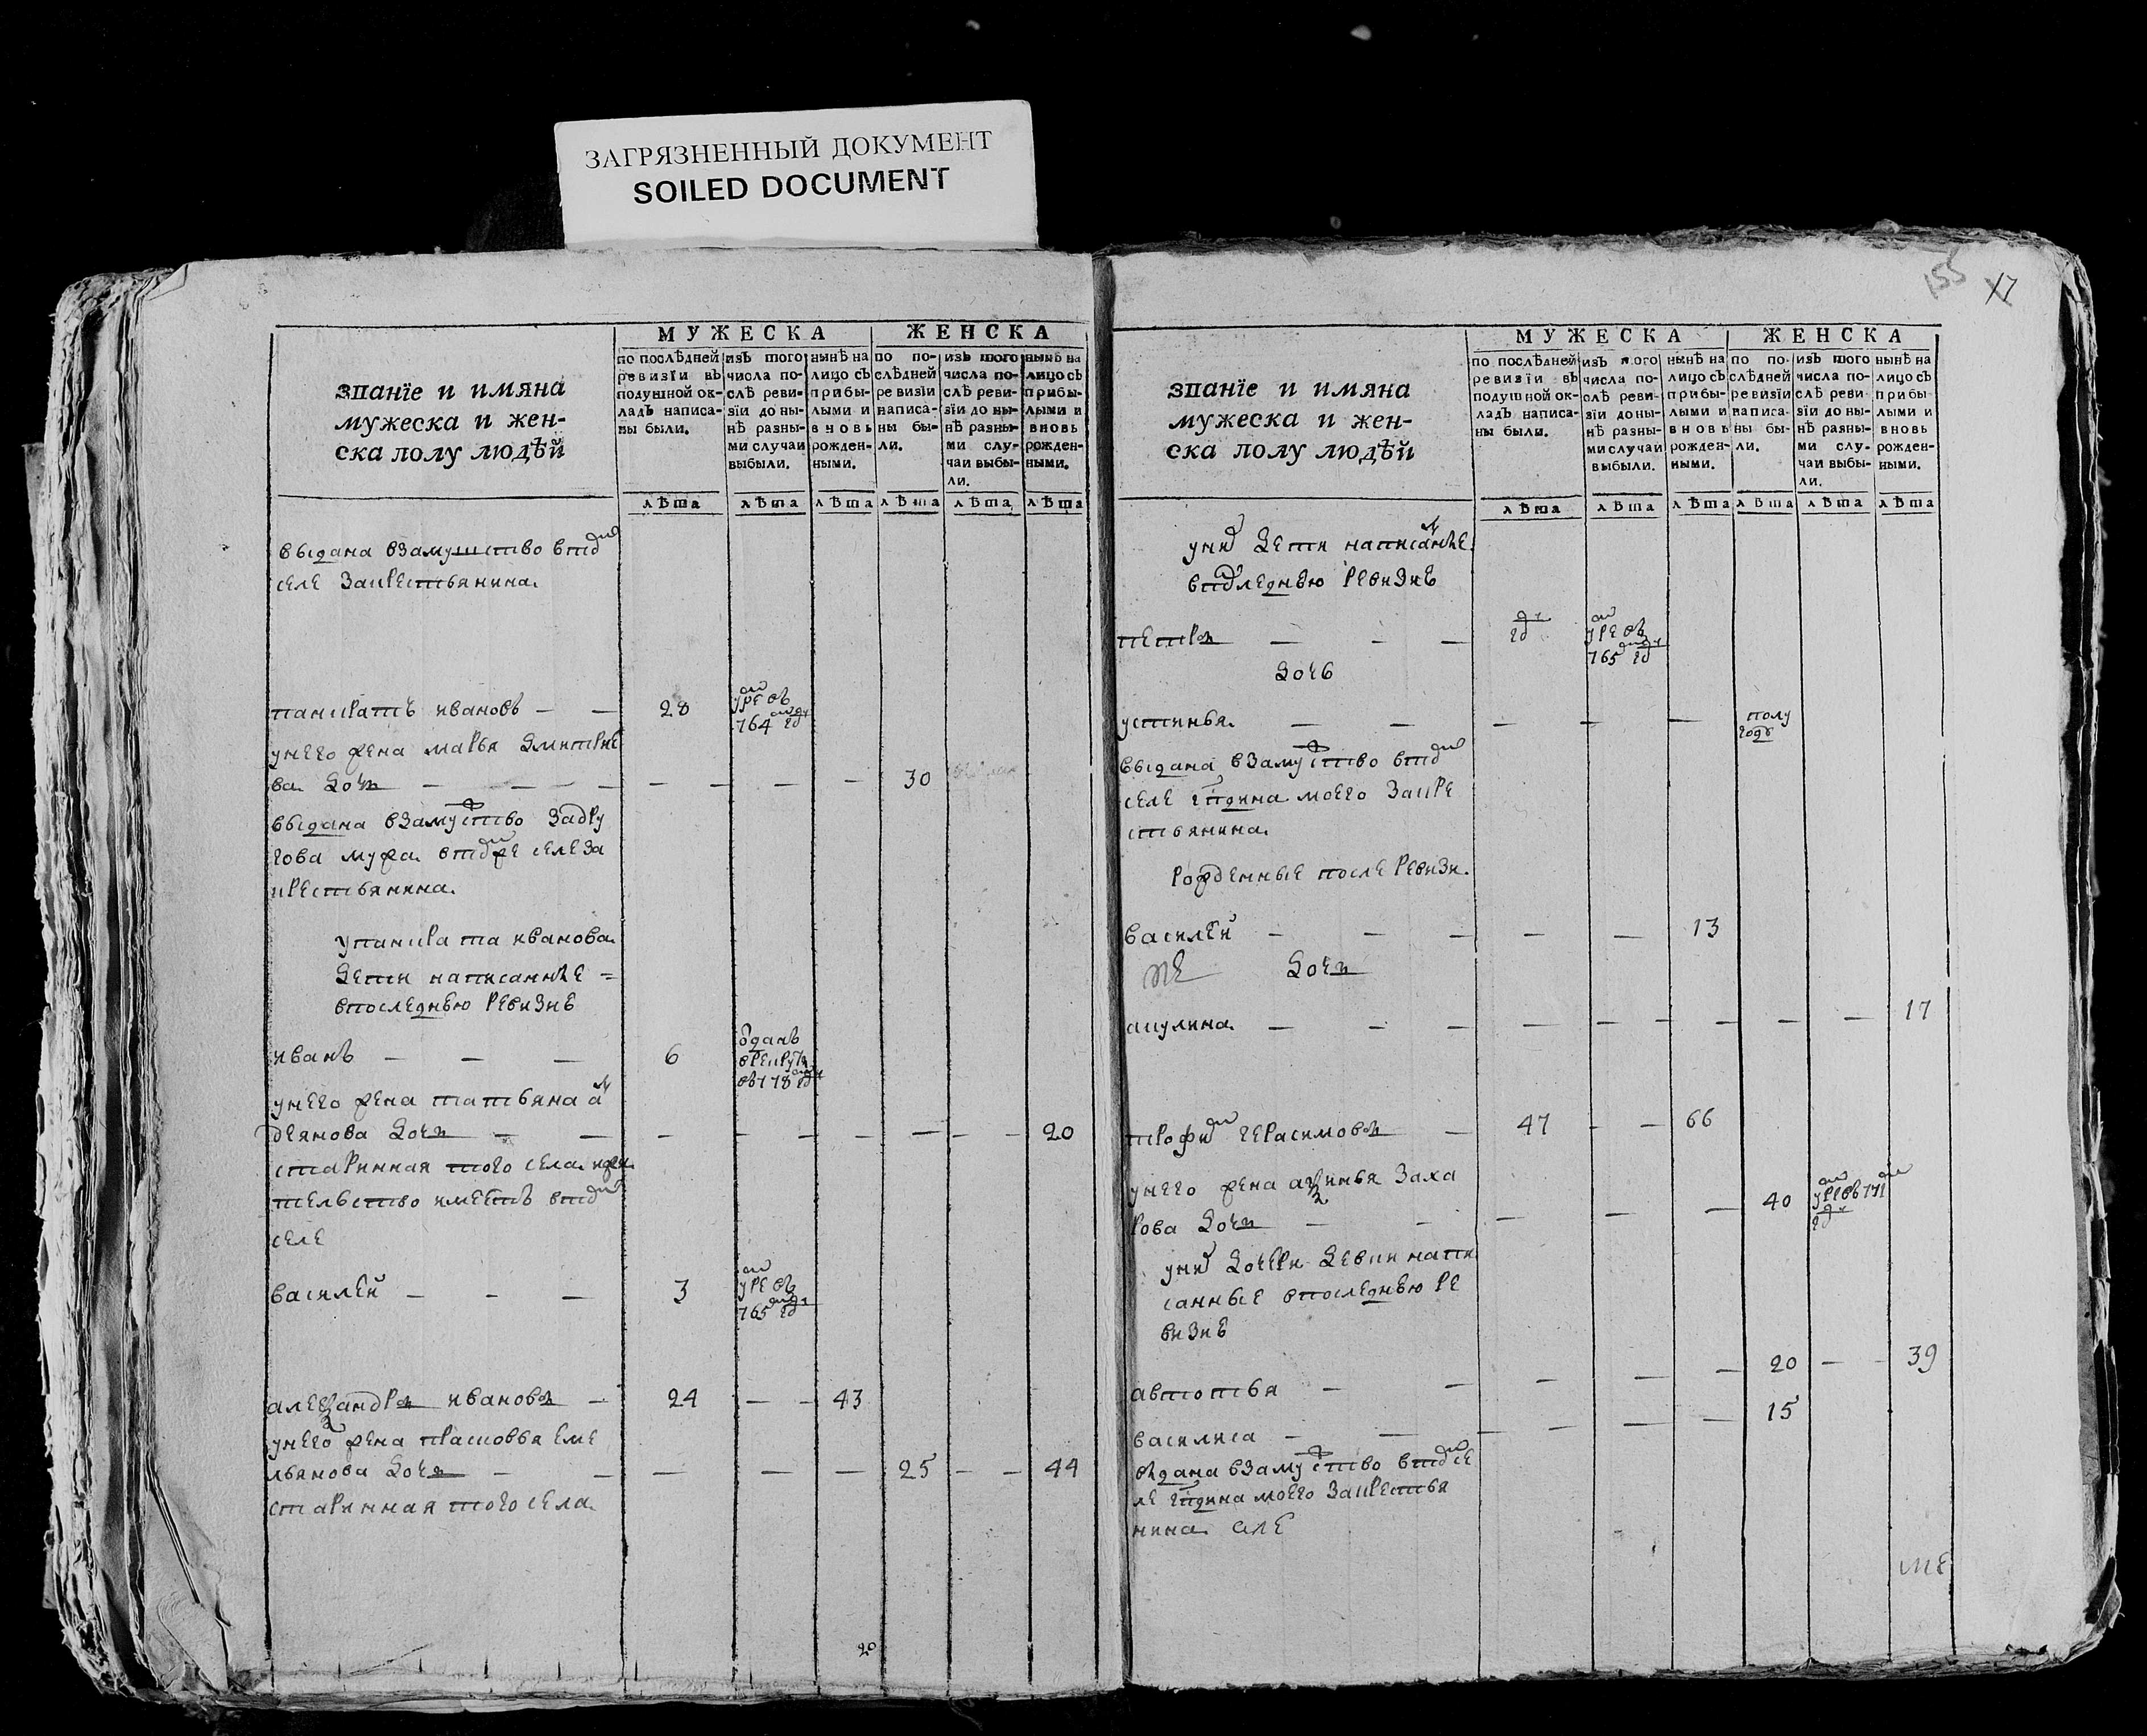 ЗАГРЯЗНЕННЫЙ ДОКУМЕНТ
SOILED DOCUMENT
МУЖЕСКА
ЖЕНСКА
званїе и имяна
мужеска и жен-
ска полу людѣй
по послѣдней
ревизїи въ
подушной ок-
ладъ написа-
ны были.
изъ того
числа по-
слѣ реви-
зїи до ны-
нѣ разны-
ми случаи
выбыли.
нынѣ на
лицо съ
прибы-
лыми и
вновь
рожден-
ными.
по по-
слѣдней
ревизїи
написа-
ны бы-
ли.
изъ того
числа по-
слѣ реви-
зїи до ны-
нѣ разны-
ми слу-
чаи выбы-
ли.
нынѣ на
лицо съ
прибы-
лыми и
вновь
рожден-
ными.
лѣта лѣта лѣта лѣта лѣта лѣта
выдана взамушство втом
селе закрестьянина
панкратъ ивановъ — — 28 умре въ 764 году
унего жена марья дмитрие
ва дочь — — — — — — — 30
выдана взамуство задру
гова мужа втом же селе за
крестьянина
упанкрата иванова
дети написанные =
впоследнею ревизиѣ
иванъ — — — 6 отданъ врекруты
унего жена татьяна
деянова дочь — — — — — — — — 20
старинная того села
тельство имеетъ втом
селе
василей — — — 3 умре въ 765 году
александръ ивановъ — 24 — — 43
унего жена прасковья еме
льянова дочь — — — — — 25 — — 44
старинная того села
20
155
17
МУЖЕСКА
ЖЕНСКА
званїе и имяна
мужеска и жен-
ска полу людѣй
по послѣдней
ревизїи въ
подушной ок-
ладъ написа-
ны были.
изъ того
числа по-
слѣ реви-
зїи до ны-
нѣ разны-
ми случаи
выбыли.
нынѣ на
лицо съ
прибы-
лыми и
вновь
рожден-
ными.
по по-
слѣдней
ревизїи
написа-
ны бы-
ли.
изъ того
числа по-
слѣ реви-
зїи до ны-
нѣ разны-
ми слу-
чаи выбы-
ли.
нынѣ на
лицо съ
прибы-
лыми и
вновь
рожден-
ными.
лѣта лѣта лѣта лѣта лѣта лѣта
уних дети написанные
впоследнею ревизиѣ
петръ — — — году умре въ 765 году
дочь
устинья — — — — — полу году
выдана взамуство втом
селе гсдина моего закре
стьянина
рожденные после ревизи
василей — — — — — 13
дочь
акулина — — — — — — — — — 17
трофим герасимовъ — 47 — — 66
унего жена аксинья заха
рова дочь — — — — — 40 умре въ 771 году
уних дочери девки напи
санные впоследнею ре
визиѣ
автотья — — — — — 20 — — 39
василиса — — — — — 15
выдана взамуство втом се
ле гсдина моего закрестья
нина